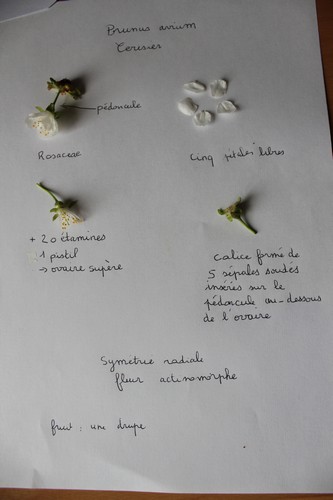 Prunus avium
Cerisier
pédoncule
Rosaceae
Cinq pétales libres
+ 20 étamines
1 pistil
→ ovaire supère
calice formé de
5 sépales soudés
insérés sur le
pédoncule au-dessous
de l'ovaire
Symetrie radiale
fleur actinomorphe
fruit : une drupe